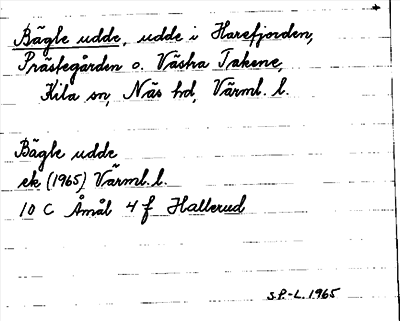 Bägle udde, udde i Harefjorden,
Prästegården o. Västra Takene,
Kila sn, Näs hd, Värml. l.
Bägle udde
ek (1965) Värml. l.
10 C Åmål 4 f Hallerud
S.P.-L. 1965